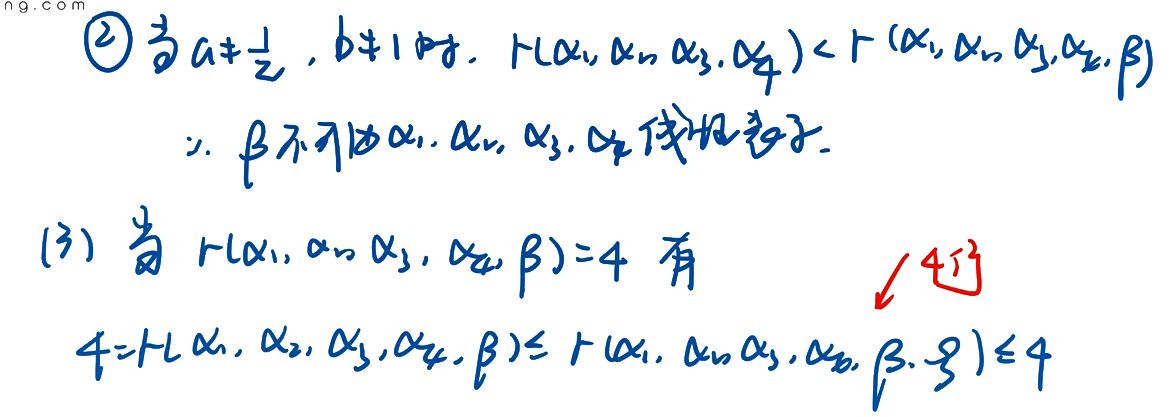 ng.com
② 当 a≠1/2, b≠1时, r(α₁, α₂, α₃, α₄) < r(α₁, α₂, α₃, α₄, β)
∴ β不可由α₁, α₂, α₃, α₄线性表示.
(3) 当 r(α₁, α₂, α₃, α₄, β)=4 有
4行
4=r(α₁, α₂, α₃, α₄, β)≤ r(α₁, α₂, α₃, α₄, β, ξ)≤4